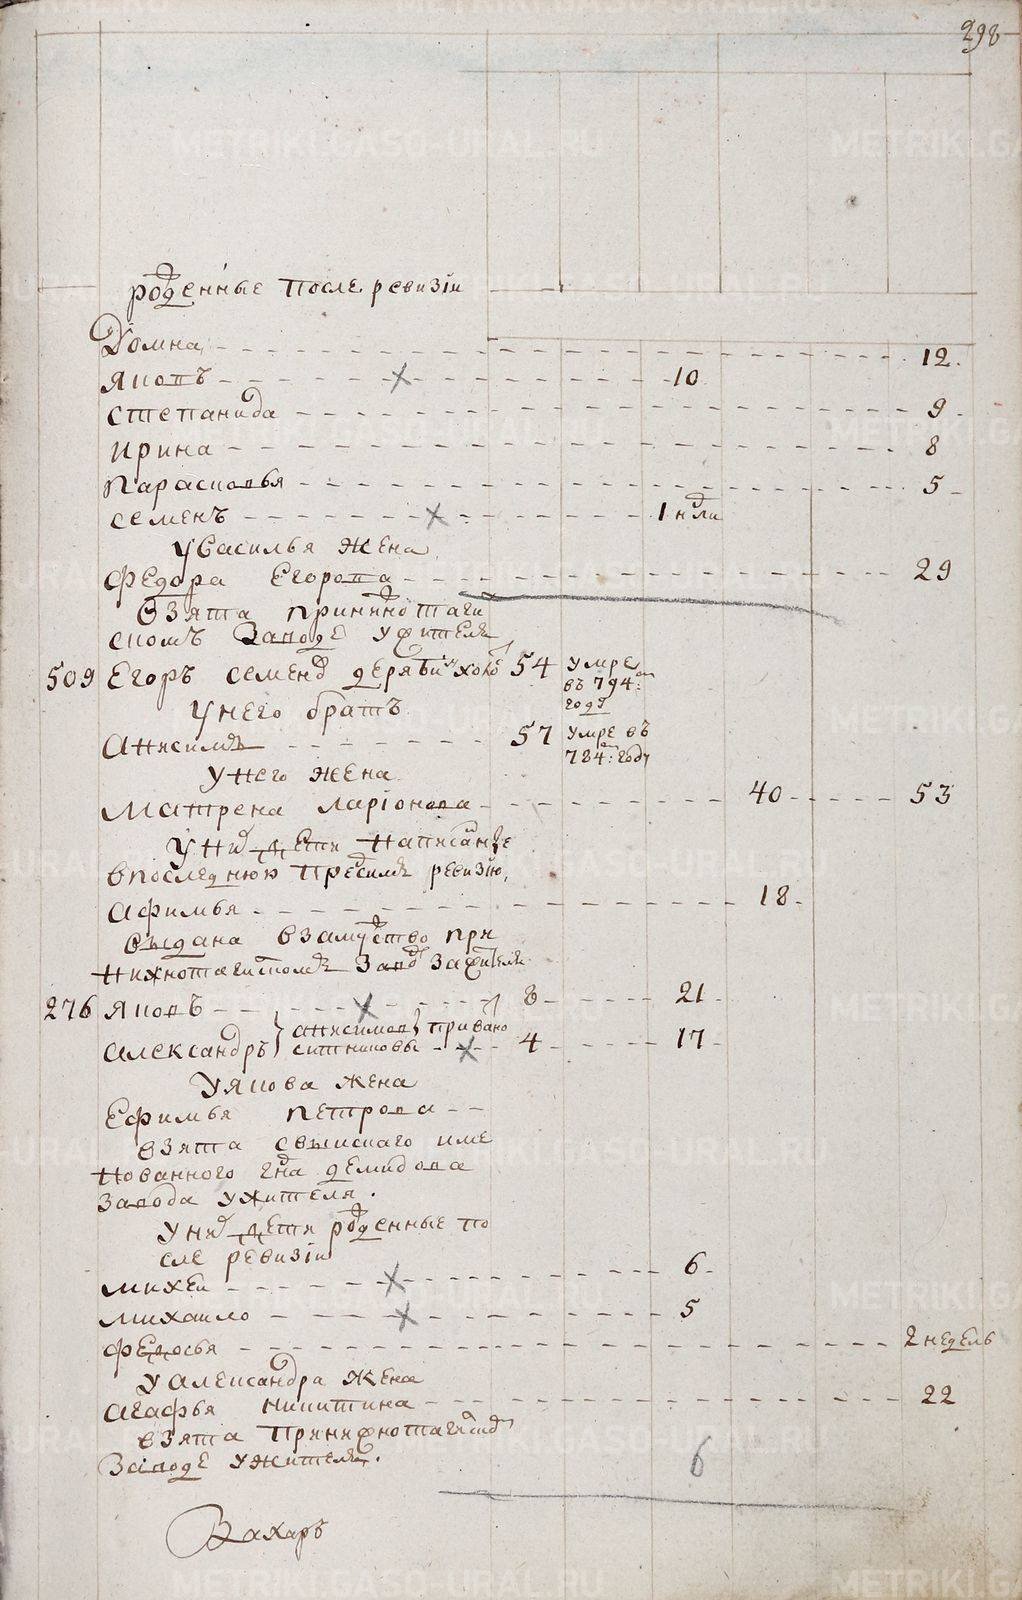 298
роженные после ревизiи
Домна 12
Яковъ 10
степанида 9
ирина 8
парасковья 5
семенъ 1 нѣли
у василья жена
Федора Егорова 29
взята принижнотаги
скомъ Заводе ужителя
509 Егоръ семенъ 54 умре въ 794: году
у него братъ
Анисимъ 57 умре въ 784: году
у него жена
Матрена ларiонова 40 53
у них дети написанные
впоследнюю пред симъ ревизiю,
афимья 18
выдана взамужство при
нижнотагилскомъ Заводе зажителя
276 Яковъ 8 21
Александръ анисимовы приванo ситниковы 4 17
у якова жена
Ефимья петрова
взята свыискаго име
нованного гдна демидова
завода ужителя.
у них дети роженные по
сле ревизiи
михеи 6
михаило 5
федосья 2 недель
у александра жена
агафья никитина 22
взята принижнотагилскомъ
Заводе ужителя.
6
Захаръ